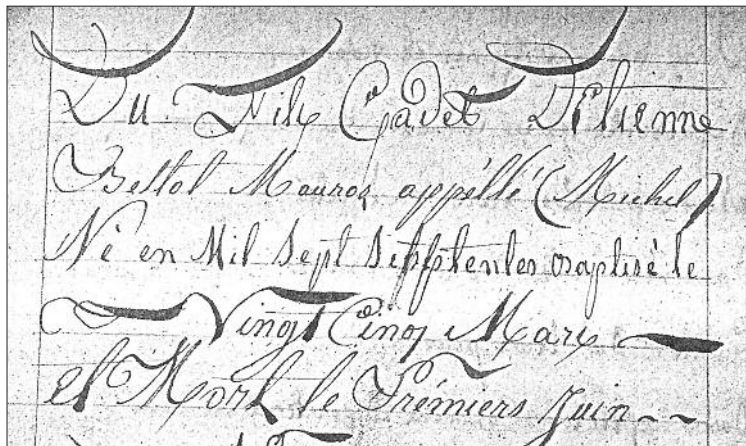 Du Fils Cadet D'Etienne
Bellot Mauroz appéllé (Michel)
Né en Mil Sept le
Vingt Cinq Mars
et Mort le Prémiers Juin